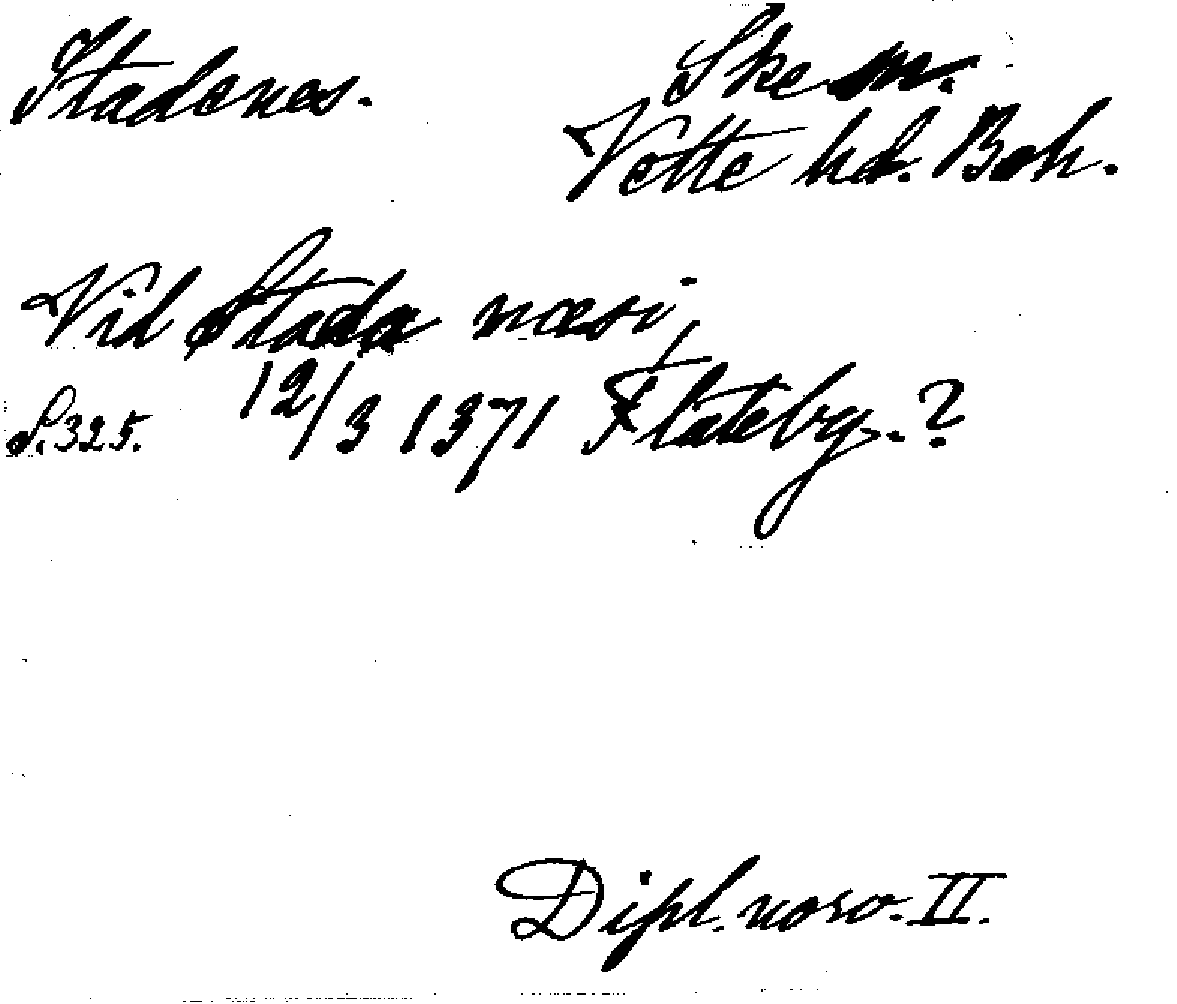 Stadenes.
Skee sn.
Vette hd. Boh.
Vid Stada næsi,
S. 325. 12/3 1371 Flateby.?
Dipl. norv. II.